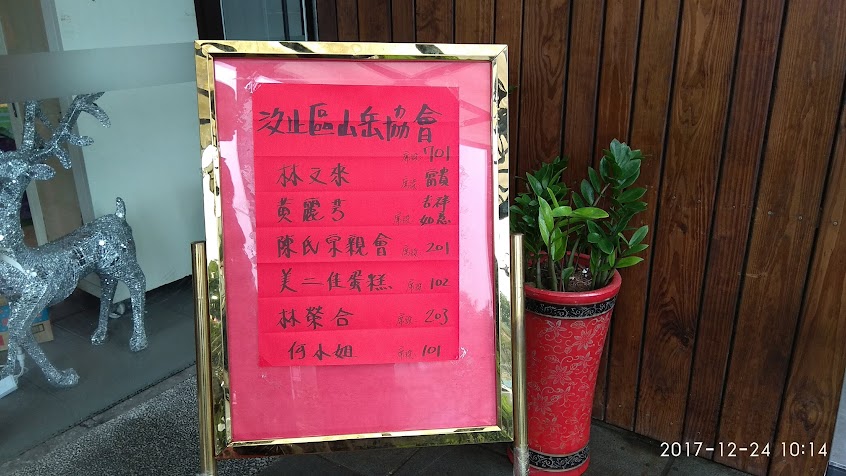 汐止區山岳協會
席設 701
林文來 席設 富貴
黃麗芳 席設 吉祥
如意
陳氏宗親會 席設 201
美二佳蛋糕 席設 102
林榮合 席設 203
何小姐 席設 101
2017-12-24 10:14